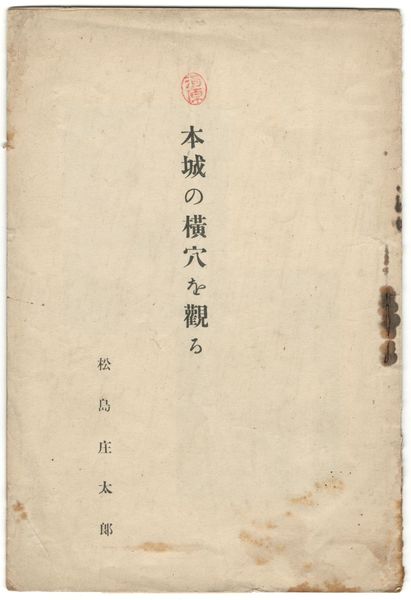 本城の橫穴を觀る
松島庄太郎